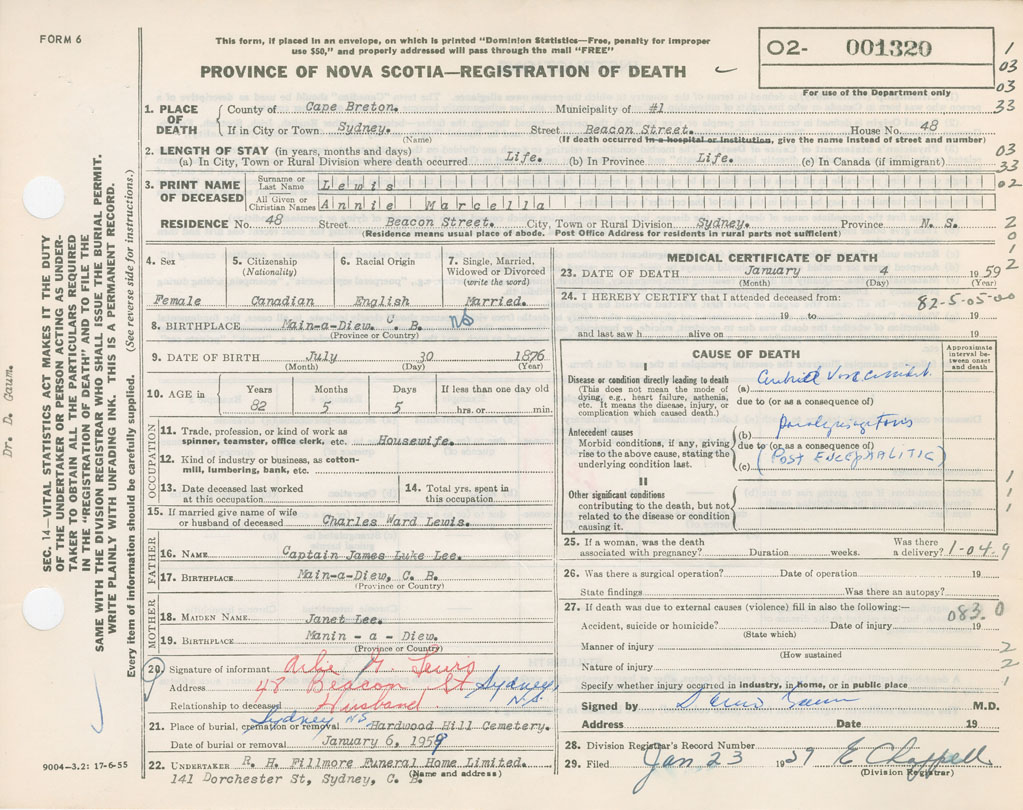 FORM 6
This form, if placed in an envelope, on which is printed "Dominion Statistics—Free, penalty for improper
use $50," and properly addressed will pass through the mail "FREE"
PROVINCE OF NOVA SCOTIA—REGISTRATION OF DEATH
O2- 001320
For use of the Department only
1
03
03
33
03
33
02
2
0
1
2
1. PLACE OF DEATH
County of Cape Breton. Municipality of #1
If in City or Town Sydney. Street Beacon Street. House No. 48
(Name) (If death occurred in a hospital or institution, give the name instead of street and number)
2. LENGTH OF STAY (in years, months and days)
(a) In City, Town or Rural Division where death occurred Life. (b) In Province Life. (c) In Canada (if immigrant)
3. PRINT NAME OF DECEASED
Surname or Last Name Lewis
All Given or Christian Names Annie Marcella
RESIDENCE No. 48 Street Beacon Street. City, Town or Rural Division Sydney. Province N. S.
(Residence means usual place of abode. Post Office Address for residents in rural parts not sufficient)
4. Sex
Female
5. Citizenship
(Nationality)
Canadian
6. Racial Origin
English
7. Single, Married,
Widowed or Divorced
(write the word)
Married.
8. BIRTHPLACE Main-a-Diew. C. B. NS
(Province or Country)
9. DATE OF BIRTH July 30 1876
(Month) (Day) (Year)
10. AGE in
Years Months Days If less than one day old
82 5 5 hrs. or min.
OCCUPATION
11. Trade, profession, or kind of work as
spinner, teamster, office clerk, etc. Housewife.
12. Kind of industry or business, as cotton-
mill, lumbering, bank, etc.
13. Date deceased last worked
at this occupation
14. Total yrs. spent in
this occupation
15. If married give name of wife
or husband of deceased Charles Ward Lewis.
FATHER
16. NAME Captain James Luke Lee.
17. BIRTHPLACE Main-a-Diew, C. B.
(Province or Country)
MOTHER
18. MAIDEN NAME Janet Lee.
19. BIRTHPLACE Manin - a - Diew.
(Province or Country)
20. Signature of informant Lewis
Address 48 Beacon St Sydney, N.S.
Relationship to deceased Husband
21. Place of burial, cremation or removal Sydney NS Hardwood Hill Cemetery.
Date of burial or removal January 6, 1959
22. UNDERTAKER R. H. Fillmore Funeral Home Limited.
141 Dorchester St, Sydney, C. B.
(Name and address)
MEDICAL CERTIFICATE OF DEATH
23. DATE OF DEATH January 4 1959
(Month) (Day) (Year)
24. I HEREBY CERTIFY that I attended deceased from: 82-5-05-00
19 to 19
and last saw h alive on 19
CAUSE OF DEATH
Approximate
interval be-
tween onset
and death
I
Disease or condition directly leading to death
(This does not mean the mode of
dying, e.g., heart failure, asthenia,
etc. It means the disease, injury, or
complication which caused death.)
(a)
due to (or as a consequence of)
Antecedent causes
Morbid conditions, if any, giving
rise to the above cause, stating the
underlying condition last.
(b)
due to (or as a consequence of)
(c) (POST ENCEPHALITIC)
II
Other significant conditions
contributing to the death, but not
related to the disease or condition
causing it.
1
1
1
25. If a woman, was the death
associated with pregnancy? Duration weeks. Was there
a delivery? 1-04.9
26. Was there a surgical operation? Date of operation 19
State findings Was there an autopsy?
27. If death was due to external causes (violence) fill in also the following:—
083.0
Accident, suicide or homicide? Date of injury 19
(State which)
Manner of injury
(How sustained
Nature of injury
Specify whether injury occurred in industry, in home, or in public place
2
2
1
Signed by M.D.
Address Date 19
28. Division Registrar's Record Number
29. Filed Jan 23 1959 E Chappell
(Division Registrar)
SEC. 14—VITAL STATISTICS ACT MAKES IT THE DUTY
OF THE UNDERTAKER OR PERSON ACTING AS UNDER-
TAKER TO OBTAIN ALL THE PARTICULARS REQUIRED
IN THE "REGISTRATION OF DEATH" AND TO FILE THE
SAME WITH THE DIVISION REGISTRAR WHO SHALL ISSUE THE BURIAL PERMIT.
WRITE PLAINLY WITH UNFADING INK. THIS IS A PERMANENT RECORD.
Every item of information should be carefully supplied. (See reverse side for instructions.)
Dr. D. Gaum.
9004-3.2: 17-6-55